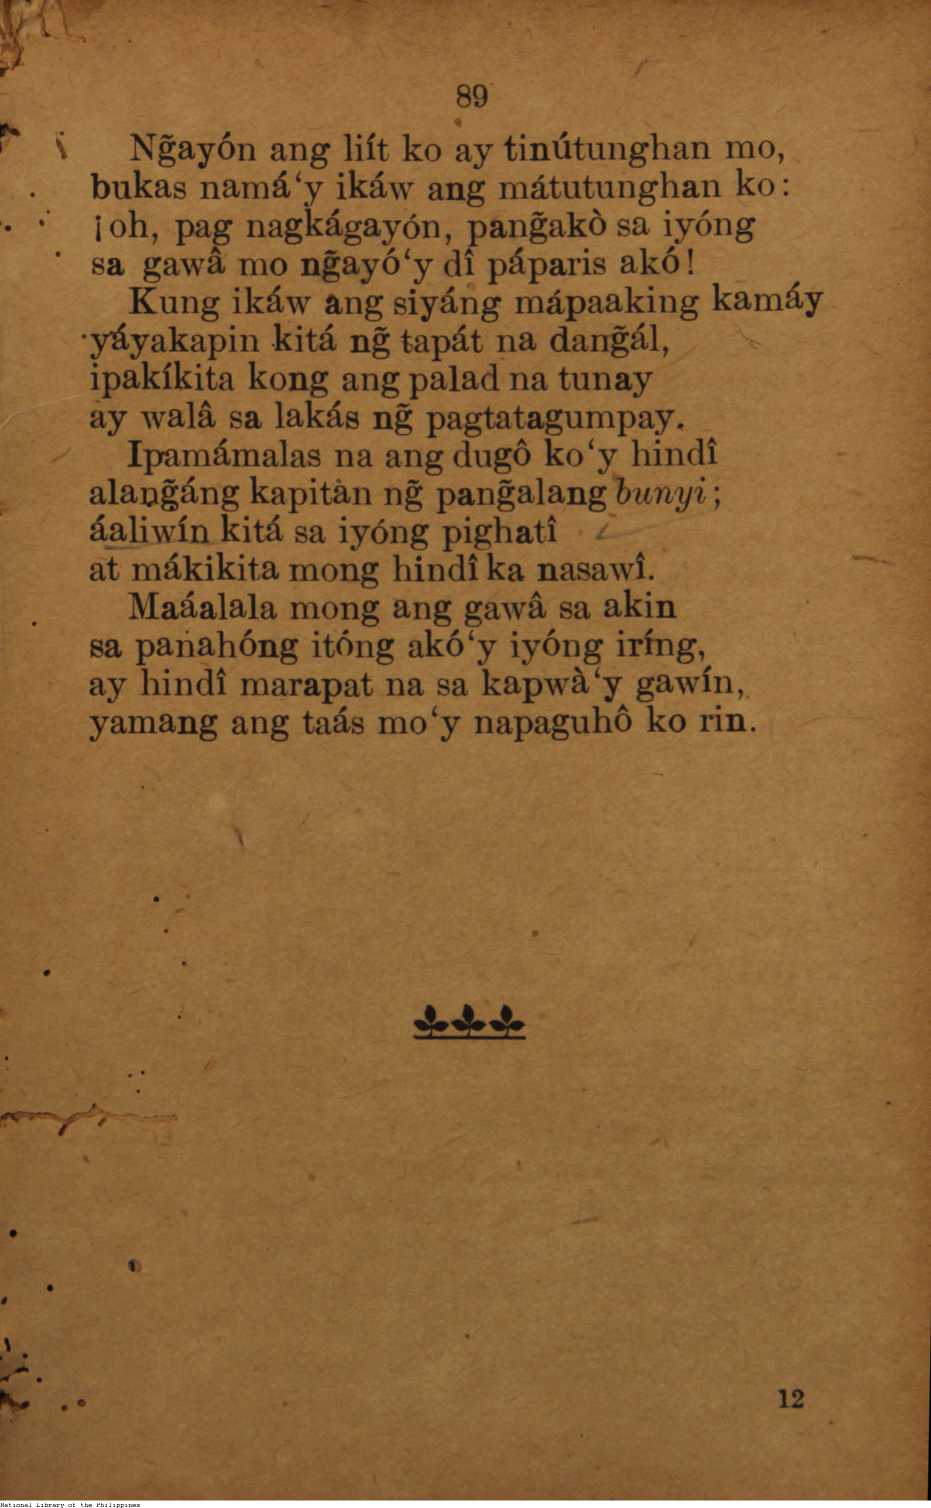 89
Ng̃ayón ang liít ko ay tinútunghan mo,
bukas namá‘y ikáw ang mátutunghan ko:
¡oh, pag nagkágayón, pang̃akò sa iyóng
sa gawâ mo ng̃ayó‘y dî páparis akó!
Kung ikáw ang siyáng mápaaking kamáy
yáyakapin kitá ng̃ tapát na dang̃ál,
ipakíkita kong ang palad na tunay
ay walâ sa lakás ng̃ pagtatagumpay.
Ipamámalas na ang dugô ko‘y hindî
alang̃áng kapitàn ng̃ pang̃alang bunyi;
áaliwín kitá sa iyóng pighatî
at mákikita mong hindî ka nasawî.
Maáalala mong ang gawâ sa akin
sa panahóng itóng akó‘y iyóng iríng,
ay hindî marapat na sa kapwà‘y gawín,
yamang ang taás mo‘y napaguhô ko rin.
12
National Library of the Philippines